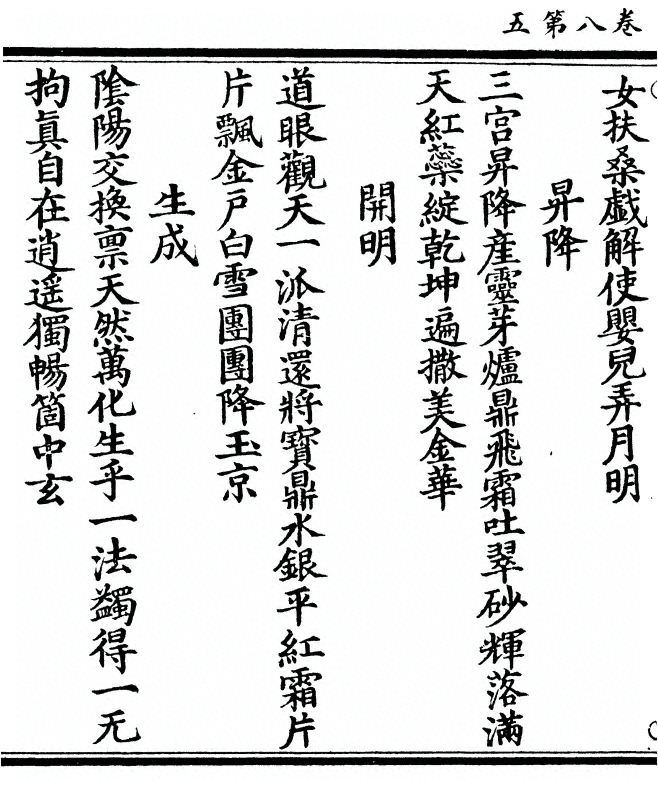 卷八第五
女扶桑戲解使嬰兒弄月明
昇降
三宮昇降產靈芽爐鼎飛霜吐翠砂輝落滿
天紅蘂綻乾坤遍撒美金華
開明
道眼觀天一派清還將寶鼎水銀平紅霜片
片飄金戶白雪團團降玉京
生成
陰陽交換禀天然萬化生乎一法蠲得一无
拘真自在逍遥獨暢箇中玄